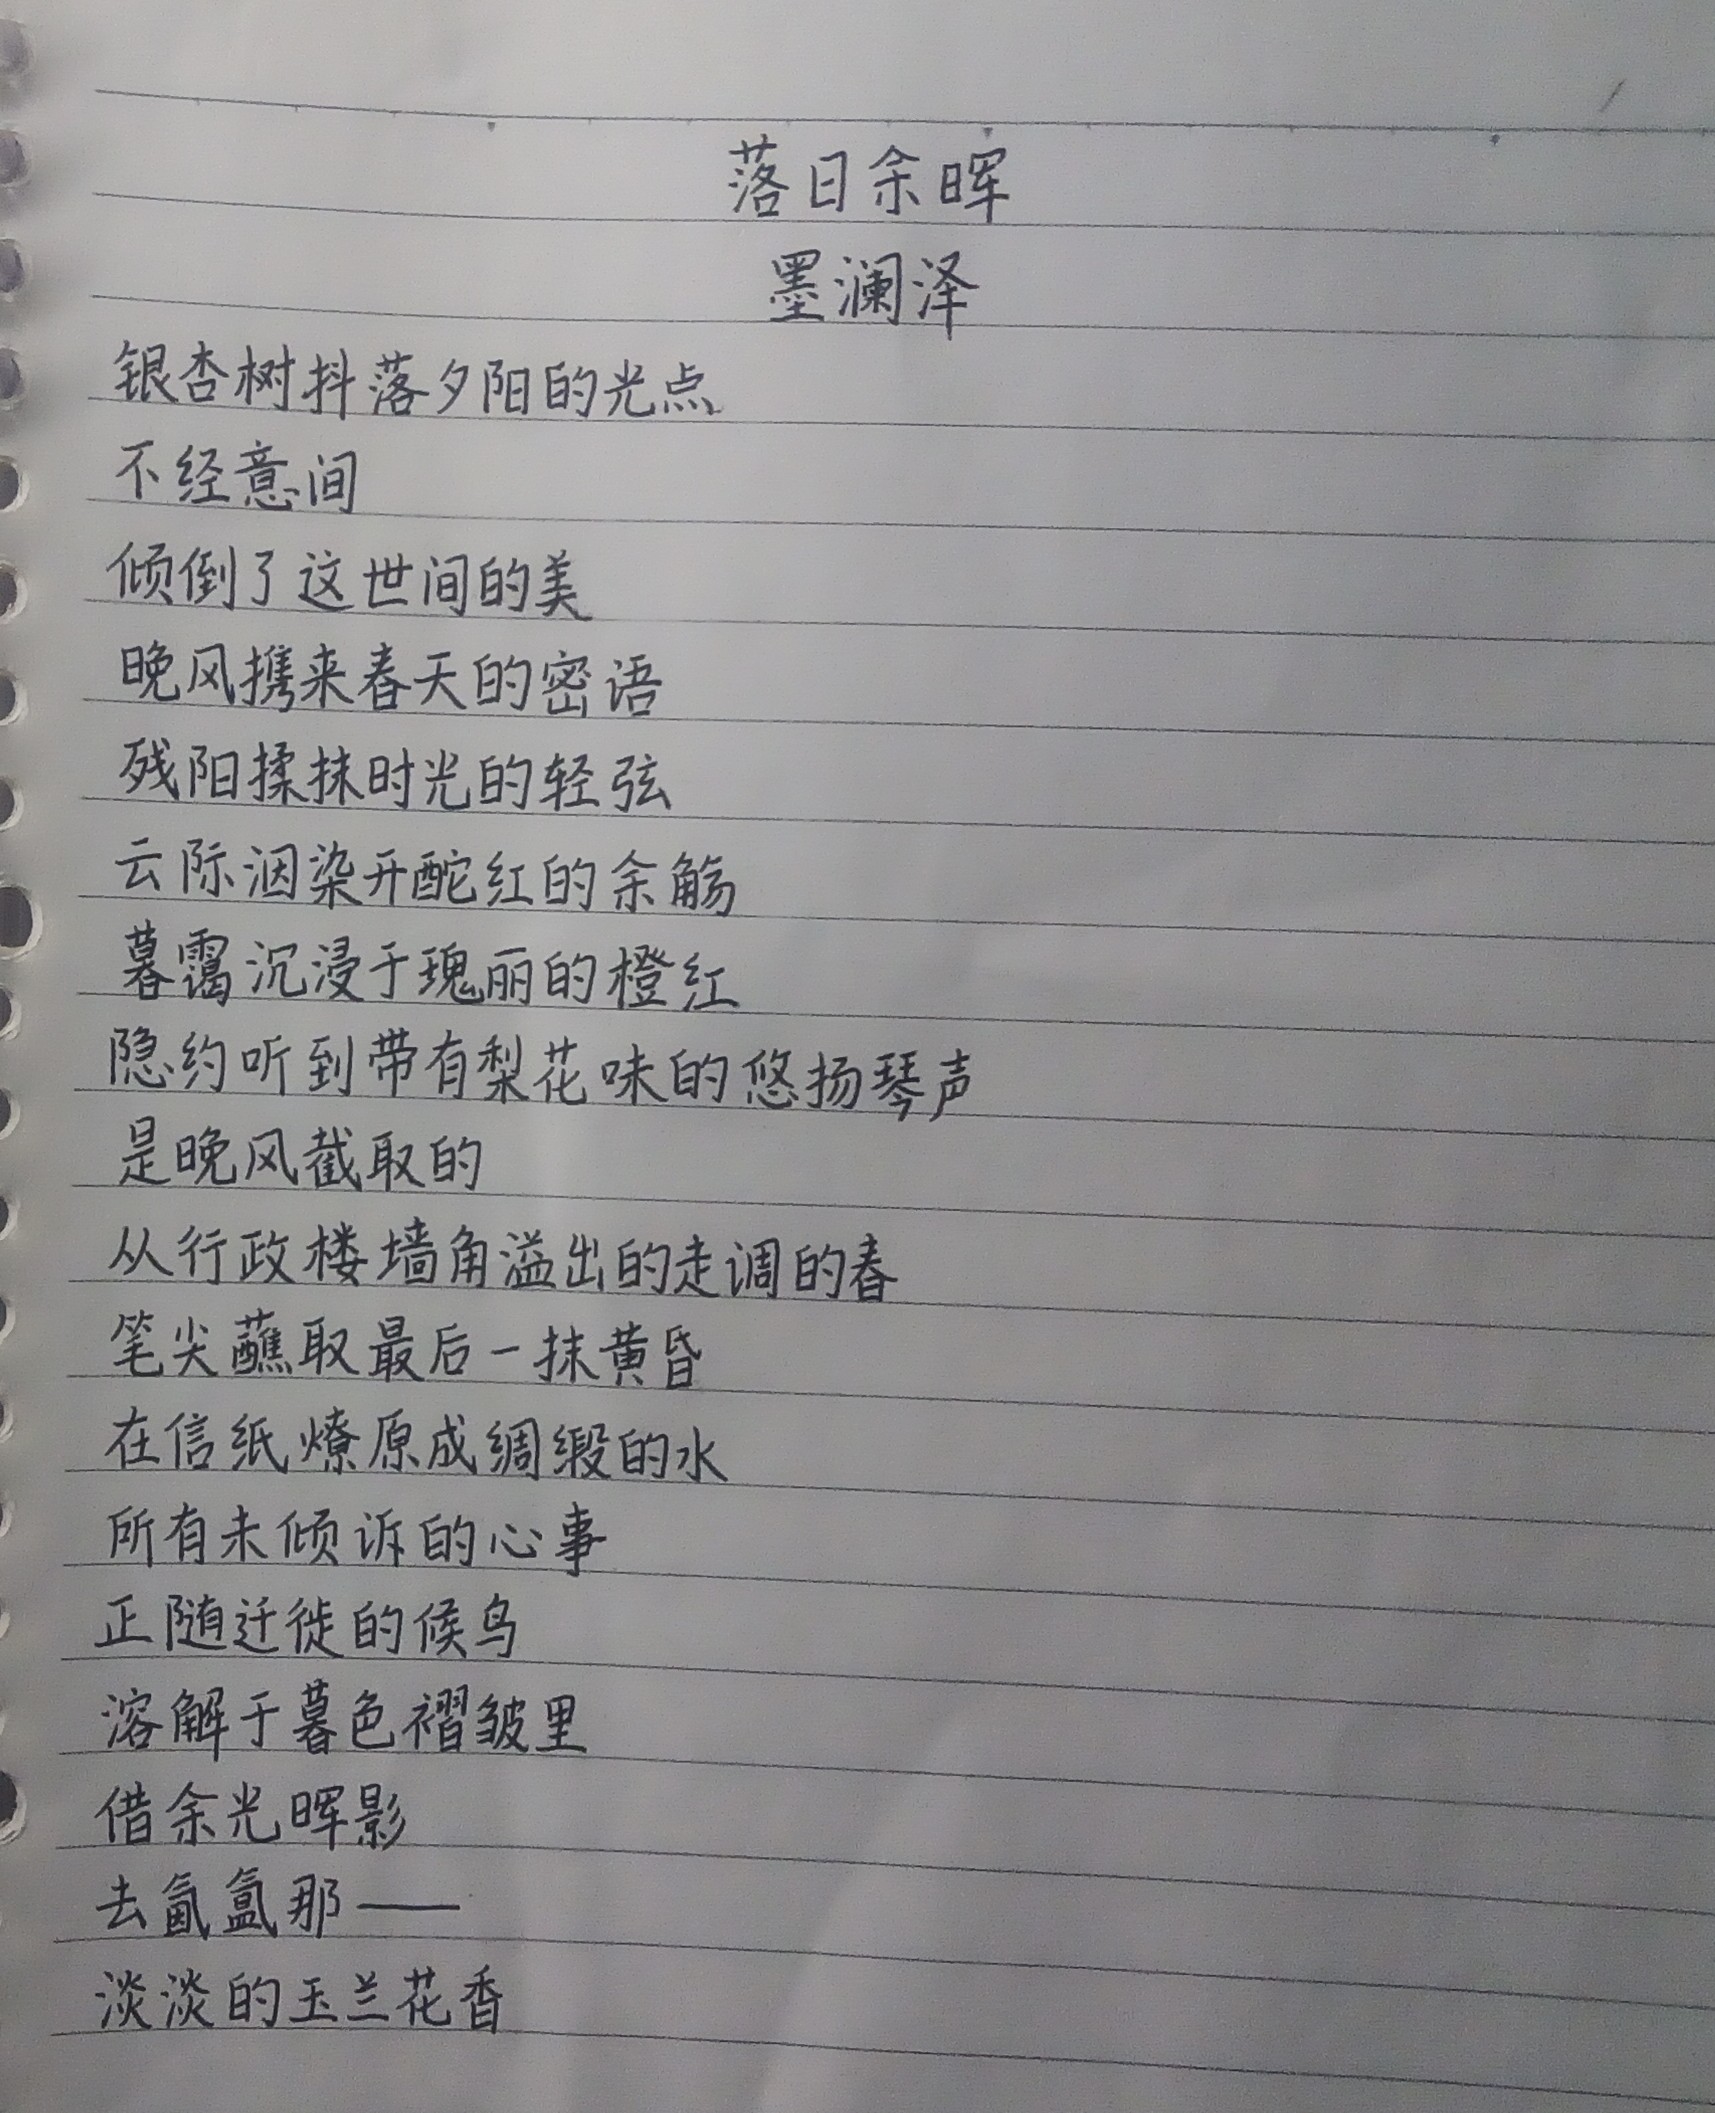 落日余晖
墨澜泽
银杏树抖落夕阳的光点
不经意间
倾倒了这世间的美
晚风携来春天的密语
残阳揉抹时光的轻弦
云际洇染开酡红的余觞
暮霭沉浸于瑰丽的橙红
隐约听到带有梨花味的悠扬琴声
是晚风截取的
从行政楼墙角溢出的走调的春
笔尖蘸取最后一抹黄昏
在信纸燎原成绸缎的水
所有未倾诉的心事
正随迁徙的候鸟
溶解于暮色褶皱里
借余光晖影
去氤氲那——
淡淡的玉兰花香